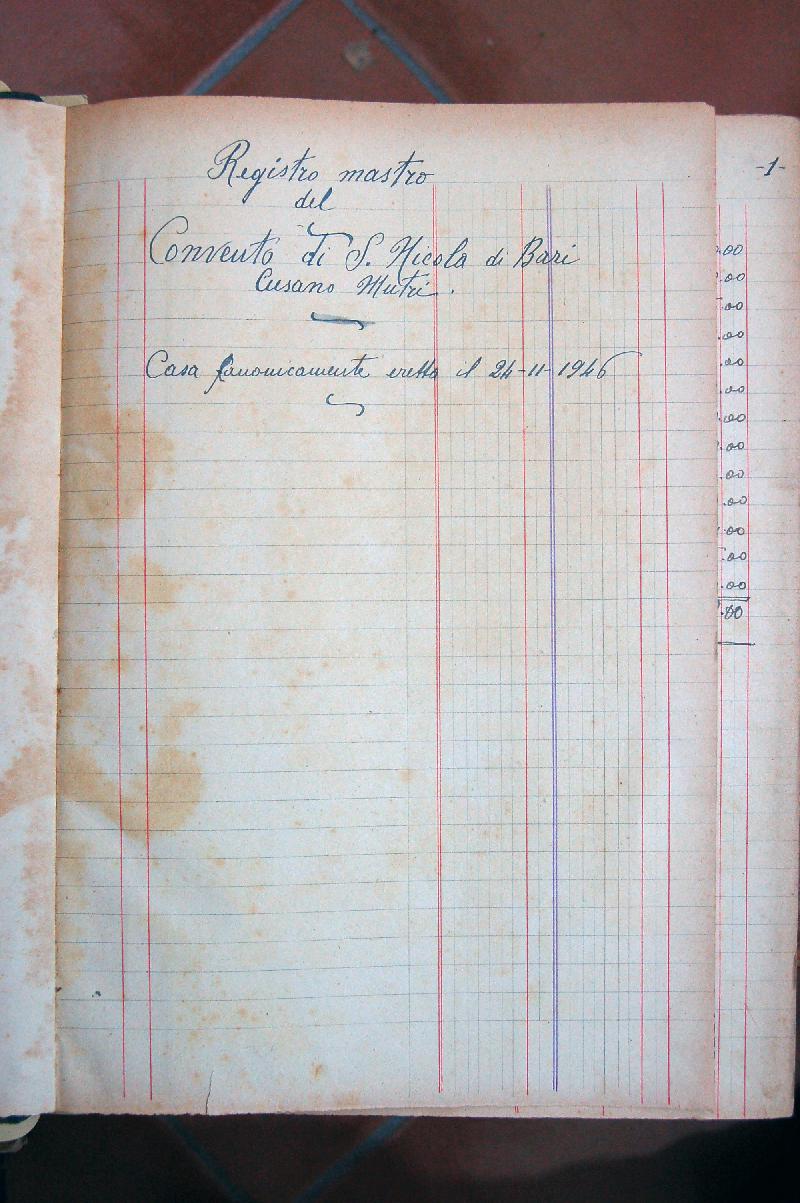 Registro mastro
del
Convento di S. Nicola di Bari
Cusano Mutri.
Casa canonicamente eretta il 24-11-1946
-1-
.00
.00
.00
.00
.00
.00
.00
.00
.00
.00
.00
.00
.00
.00